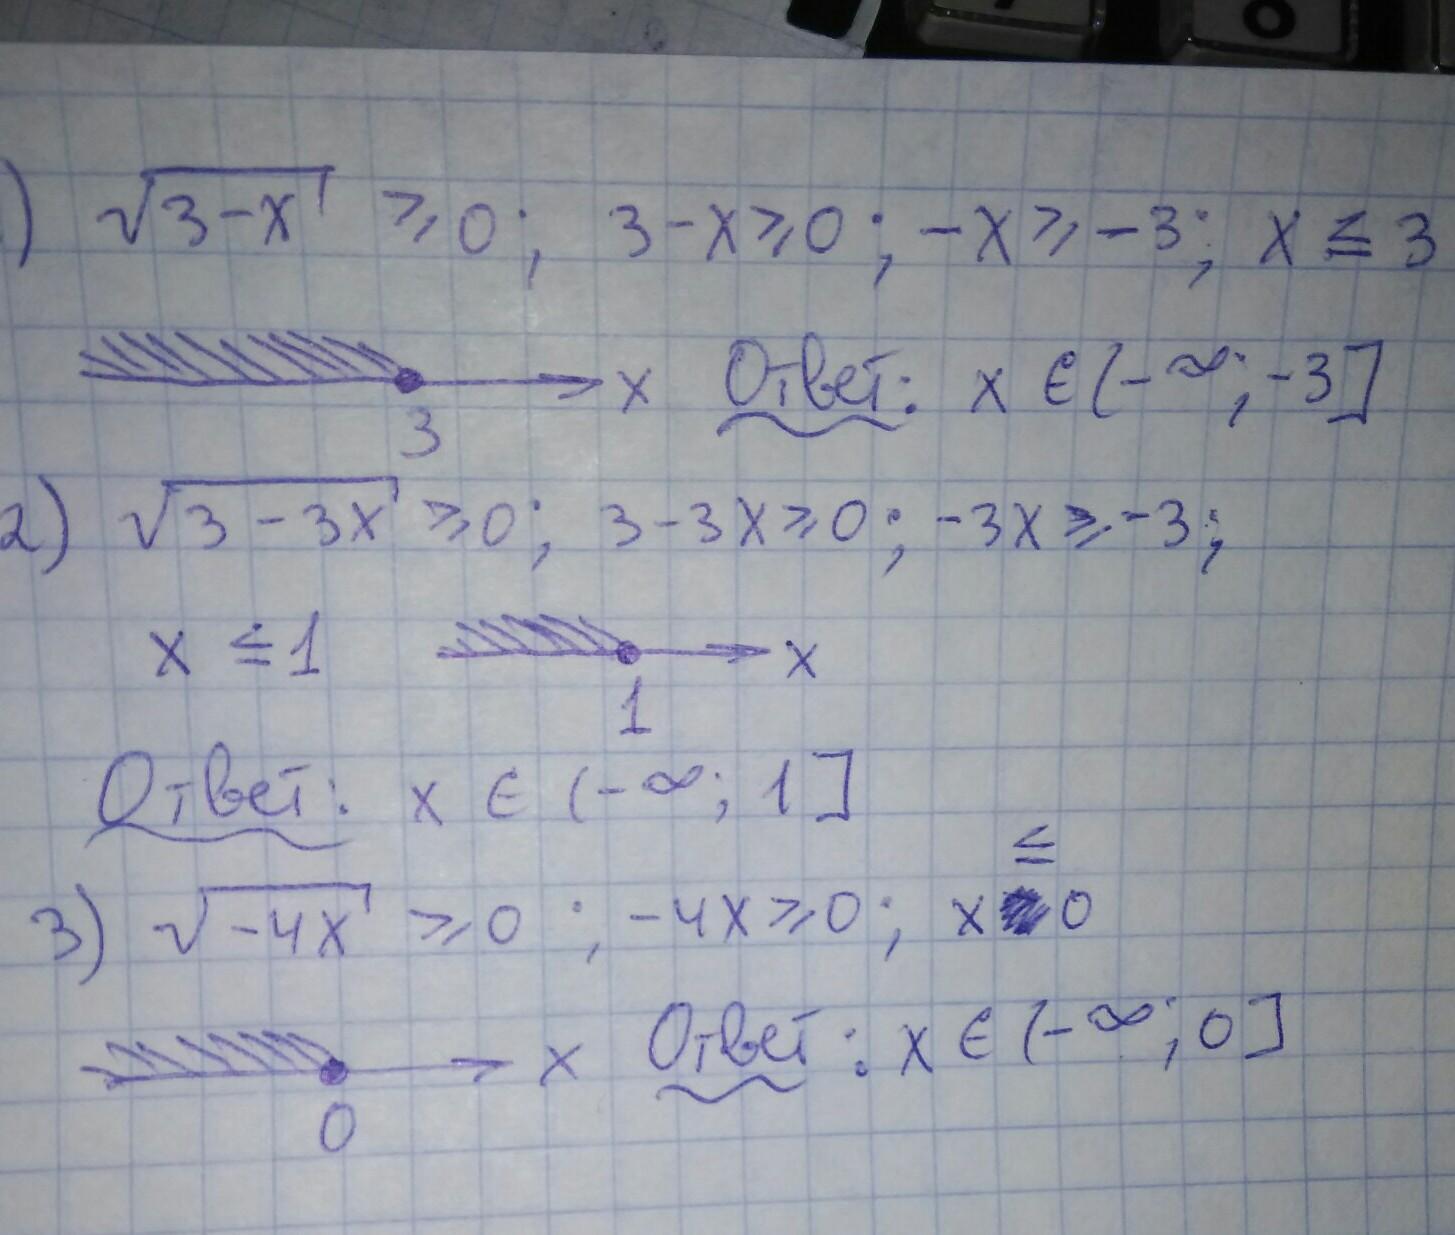 1) √3-x ⩾ 0; 3-x⩾0; -x⩾-3; x ≤ 3
3 x Ответ: x ∈(-∞; -3]
2) √3-3x ⩾0; 3-3x⩾0; -3x⩾-3;
x ≤ 1 1 x
Ответ: x ∈ (-∞; 1]
3) √-4x ⩾0; -4x⩾0; x ≤ 0
0 x Ответ: x ∈ (-∞; 0]